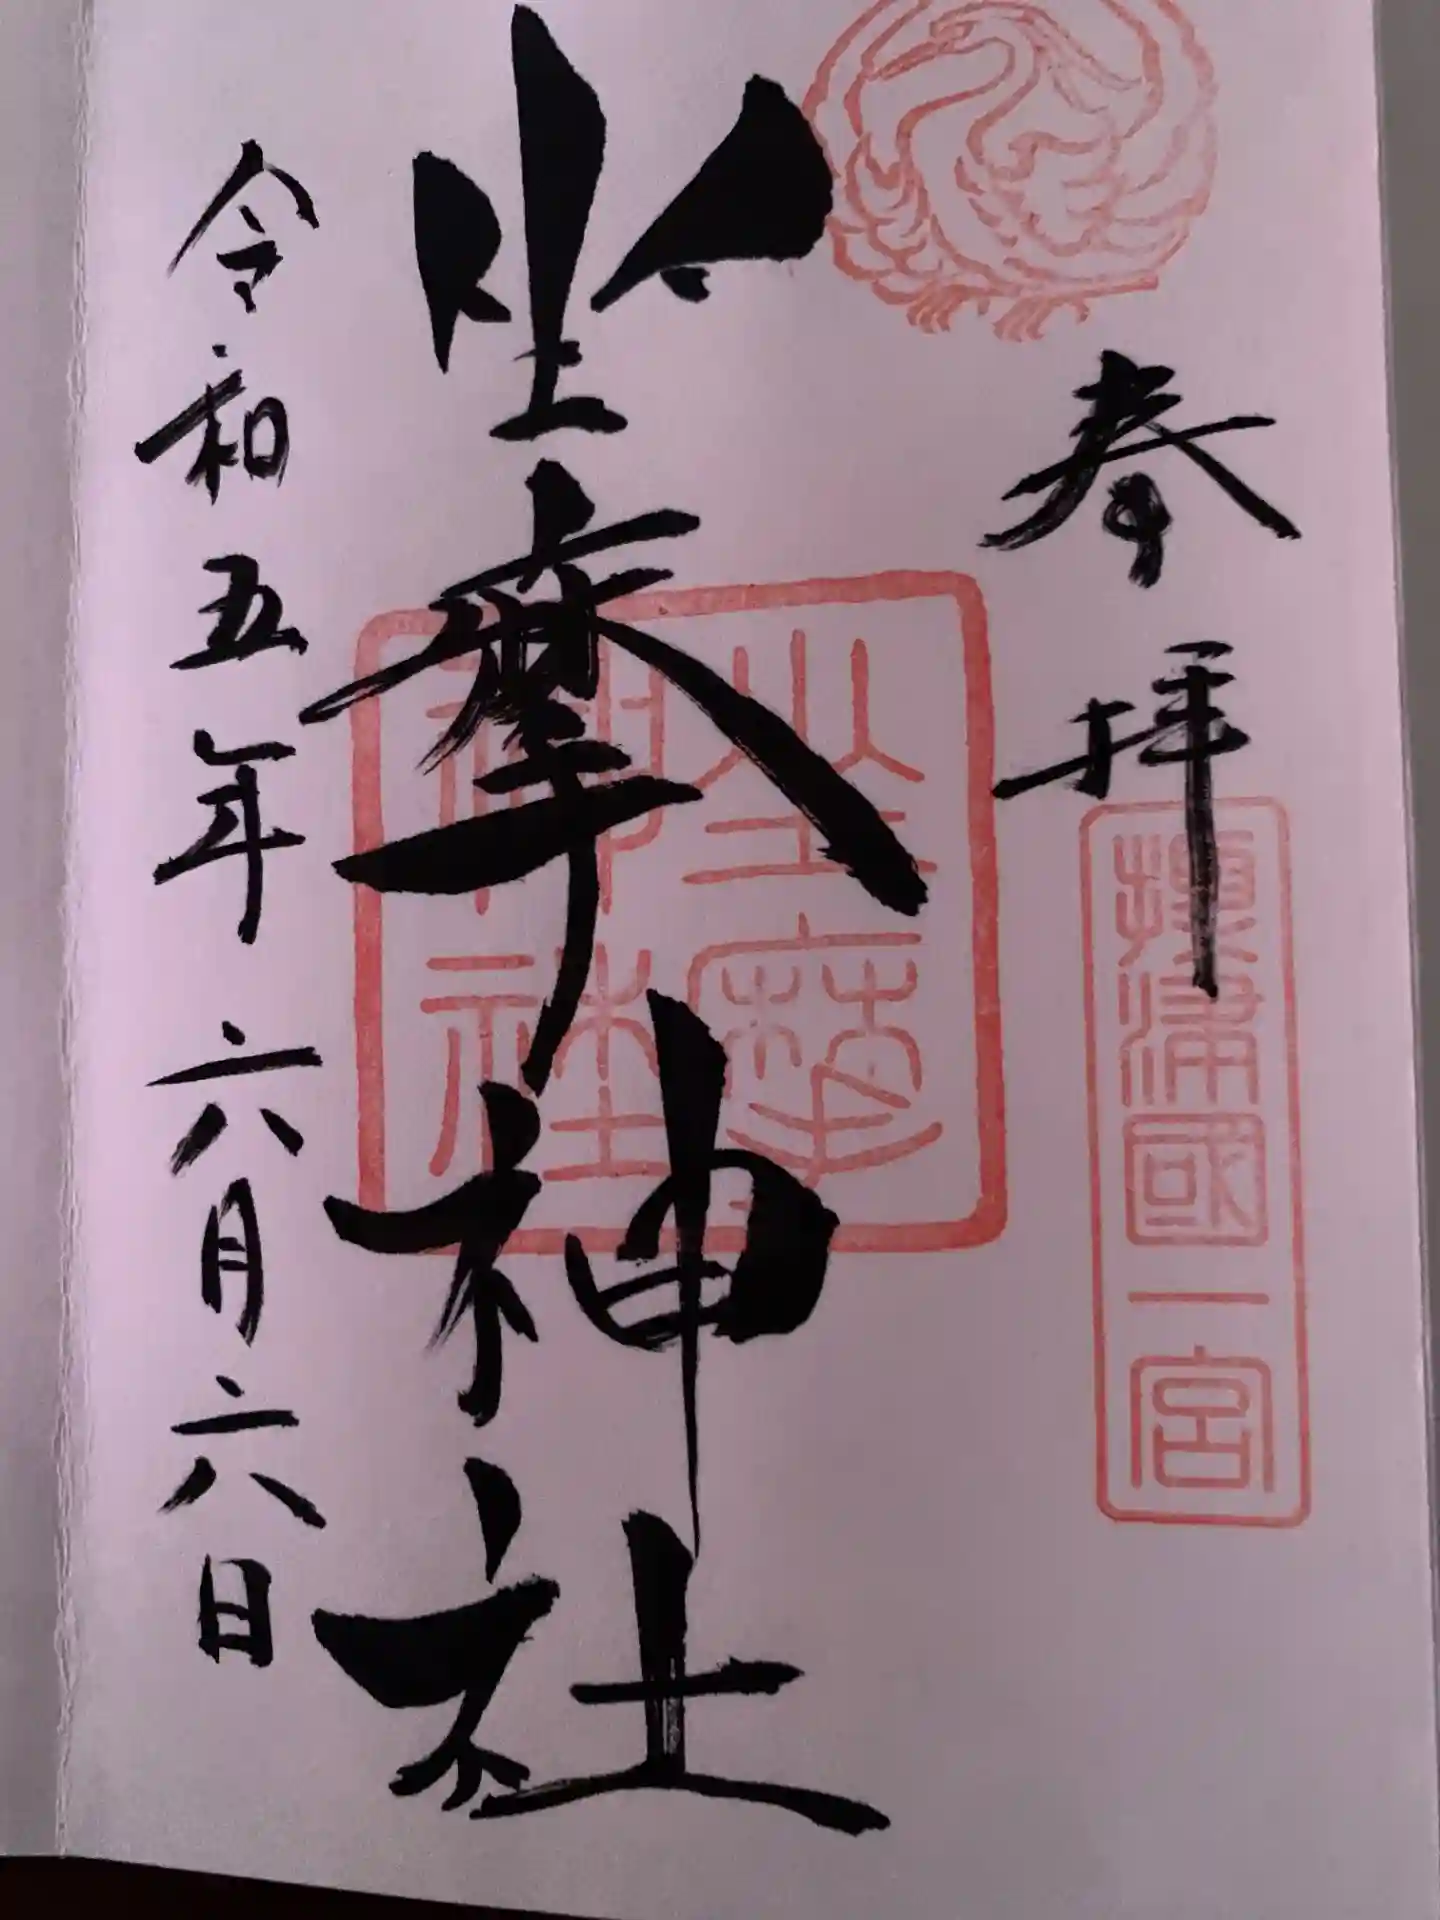 奉拝
攝津國一宮
坐摩神社
坐摩
神社
令和五年六月六日